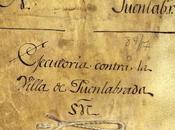 Fuenlabrada
Executoria contra la
Villa de Fuenlabrada